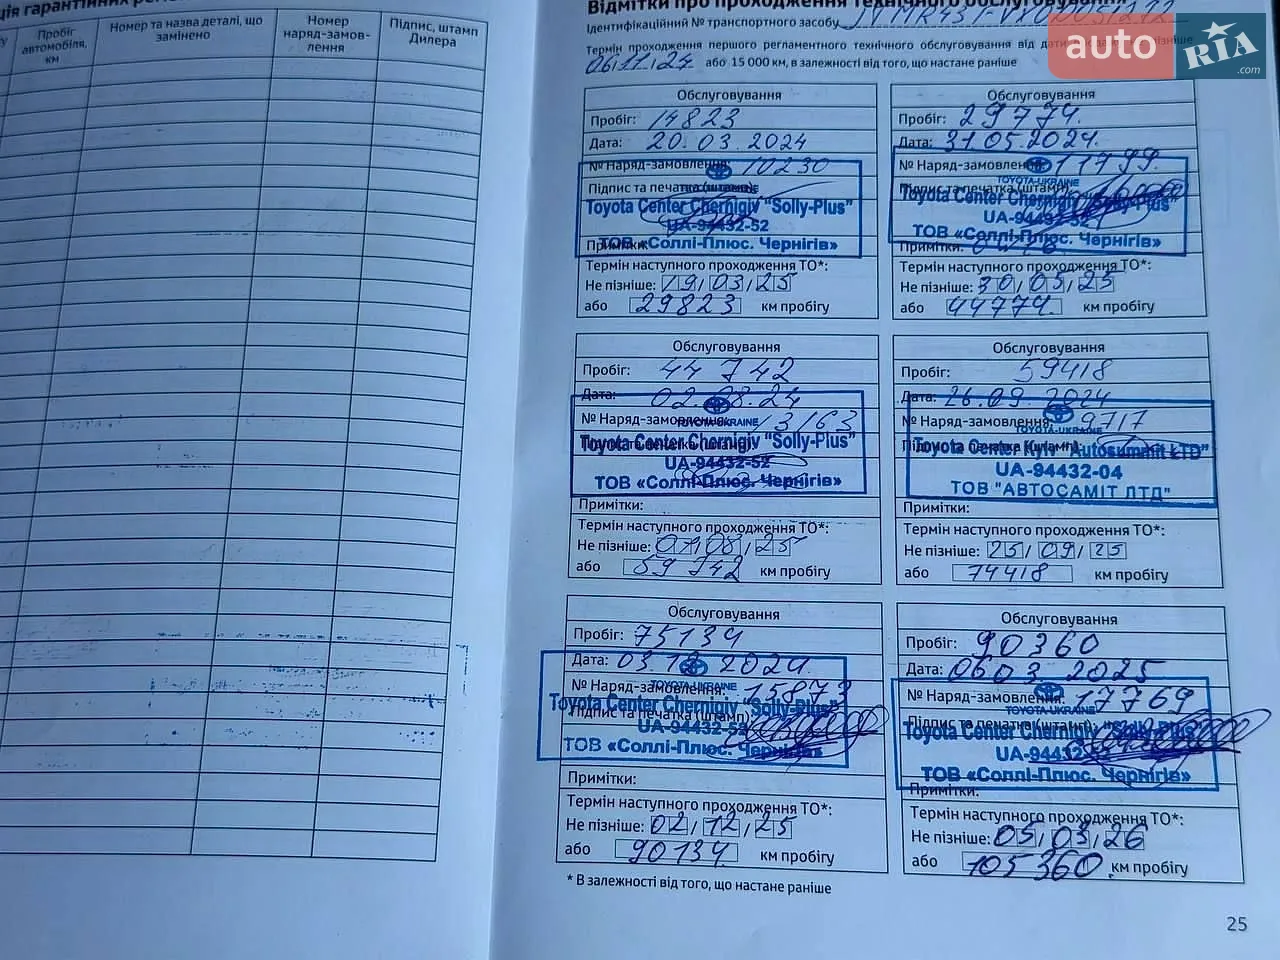 Пробіг автомобіля, км
Номер та назва деталі, що замінено
Номер наряд-замовлення
Підпис, штамп Дилера
Відмітки про проходження технічного обслуговування
Ідентифікаційний № транспортного засобу
Термін проходження першого регламентного технічного обслуговування від дати
06.11.24 або 15 000 км, в залежності від того, що настане раніше
auto RIA .com
Обслуговування
Пробіг: 14823
Дата: 20.03.2024
№ Наряд-замовлення: 10230
Підпис та печатка (штамп):
Toyota Center Chernigiv "Solly-Plus"
UA-94432-52
ТОВ «Соллі-Плюс. Чернігів»
Примітки:
Термін наступного проходження ТО*:
Не пізніше: 19/03/25
або 29823 км пробігу
Обслуговування
Пробіг: 29774.
Дата: 31.05.2024.
№ Наряд-замовлення: 11799.
TOYOTA-UKRAINE
Підпис та печатка (штамп):
Toyota Center Chernigiv "Solly-Plus"
UA-94432-52
ТОВ «Соллі-Плюс. Чернігів»
Примітки:
Термін наступного проходження ТО*:
Не пізніше: 30/05/25
або 44774. км пробігу
Обслуговування
Пробіг: 44742
Дата: 02.08.24
№ Наряд-замовлення: 13163
TOYOTA-UKRAINE
Toyota Center Chernigiv "Solly-Plus"
UA-94432-52
ТОВ «Соллі-Плюс. Чернігів»
Примітки:
Термін наступного проходження ТО*:
Не пізніше: 01/08/25
або 59742 км пробігу
Обслуговування
Пробіг: 59418
Дата: 26.09.2024
№ Наряд-замовлення: 9717
TOYOTA-UKRAINE
Toyota Center Kyiv "Autosummit LTD"
UA-94432-04
ТОВ "АВТОСАМІТ ЛТД"
Примітки:
Термін наступного проходження ТО*:
Не пізніше: 25/09/25
або 74418 км пробігу
Обслуговування
Пробіг: 75134
Дата: 03.12.2024.
№ Наряд-замовлення: 15873
TOYOTA-UKRAINE
Toyota Center Chernigiv "Solly-Plus"
Підпис та печатка (штамп):
UA-94432-52
ТОВ «Соллі-Плюс. Чернігів»
Примітки:
Термін наступного проходження ТО*:
Не пізніше: 02/12/25
або 90134. км пробігу
Обслуговування
Пробіг: 90360
Дата: 06 03 2025
№ Наряд-замовлення: 17769
TOYOTA-UKRAINE
Підпис та печатка (штамп):
Toyota Center Chernigiv "Solly-Plus"
UA-94432
ТОВ «Соллі-Плюс. Чернігів»
Примітки:
Термін наступного проходження ТО*:
Не пізніше: 05/03/26
або 105360 км пробігу
* В залежності від того, що настане раніше
25